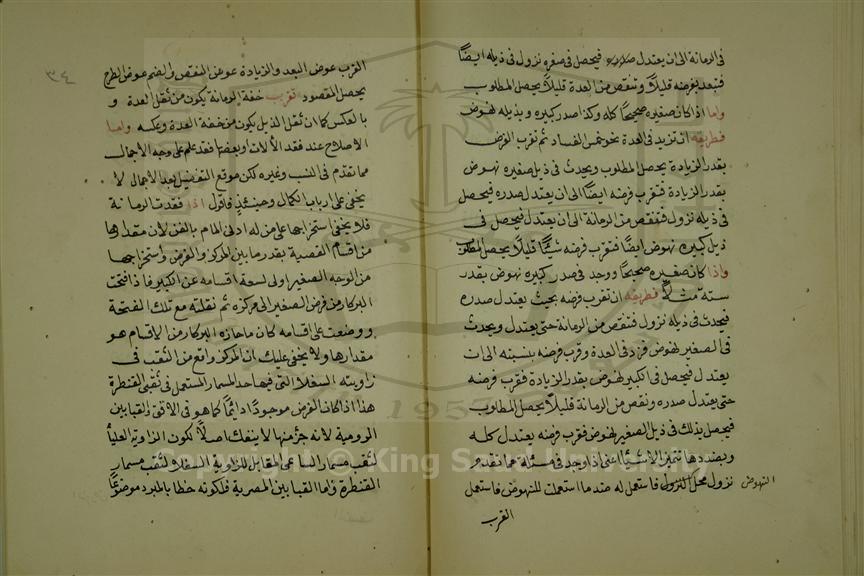 فى الرمانة الى ان يعتدل صدره فيحصل فى صغيره نزول فى ذيله ايضاً
فتبعد بفرضه قليلاً وتنقص من العدة قليلاً يحصل المطلوب
واما اذا كان صغيره صحيحاً كله وكذا صدر كبيره وبذيله نهوض
فطريقه ان تزيد فى العدة نحو خمس الفساد ثم تقرب الفرض
بقدر الزيادة يحصل المطلوب ويحدث فى ذيل صغيره نهوض
بقدر الزيادة فتقرب فرضه ايضاً الى ان يعتدل صدره فيحصل
فى ذيله نزول فتنقص من الرمانة الى ان يعتدل فيحصل فى
ذيل كبيره نهوض ايضاً فتقرب فرضه شيئاً قليلاً يحصل المطلوب
واذا كان صغيره صحيحاً ووجد فى صدر كبيره نهوض بقدر
ستة مثلاً فطريقه ان تقرب فرضه بحيث يعتدل صدره
فيحدث فى ذيله نزول فتنقص من الرمانة حتى يعتدل ويحدث
فى الصغير نهوض فزد فى العدة وقرب فرضه بنسبته الى ان
يعتدل فيحصل فى الكبير نهوض بقدر الزيادة فقرب فرضه
حتى يعتدل صدره ونقص من الرمانة قليلاً يحصل المطلوب
فيحصل بذلك فى ذيل الصغير نهوض فقرب فرضه يعتدل كله
وبضدها تتميز الاشياء اعنى اذا وجد فى مسئلة مما تقدم
نزول محل النزول فاستعمل له ضد ما استعملت للنهوض فاستعمل
النهوض
القرب
٣٤
القرب عوض البعد والزيادة عوض النقص والضم عوض الطرح
يحصل المقصود تقريب خفة الرمانة يكون من ثقل العدة و
بالعكس كما ان ثقل الذيل يكون من خفة العدة وعكسه واما
الاصلاح عند فقد الآلات او بعضها فقد علم على وجه الاجمال
مما تقدم فى النسب وغيره لكن موقع التفصيل بعد الاجمال لا
يخفى على ارباب الكمال وحينئذ فاقول اذا فقدت الرمانة
فلا يخفى استخراجها على من له ادنى المام بالفن لان مقدارها
من اقسام القصبة بقدر ما بين المركز والفرض واستخراجها
من الوجه الصغير اولى لسعة اقسامه عن الكبير فاذا فتحت
البركار من فرض الصغير الى مركزه ثم نقلته مع تلك الفتحة
ووضعت على اقسامه كان ما حازه البركار من الاقسام هو
مقدارها ولا يخفى عليك ان المركز واقع من الثقب فى
زاويته السفلا التى فيها حد المسمار المستعمل فى ثقبى القنطرة
هذا اذا كان الفرض موجوداً دايماً كما هو فى الاقوى والقبابين
الرومية لانه جزء منها لا ينفك اصلاً لكون الزاوية العليا
لثقب مسمار الساعى المقابل للزاوية السفلا لثقب مسمار
القنطرة واما القبابين المصرية فلكونه خطا بالمبرد موضوعاً
Copyright © King Saud University
1957